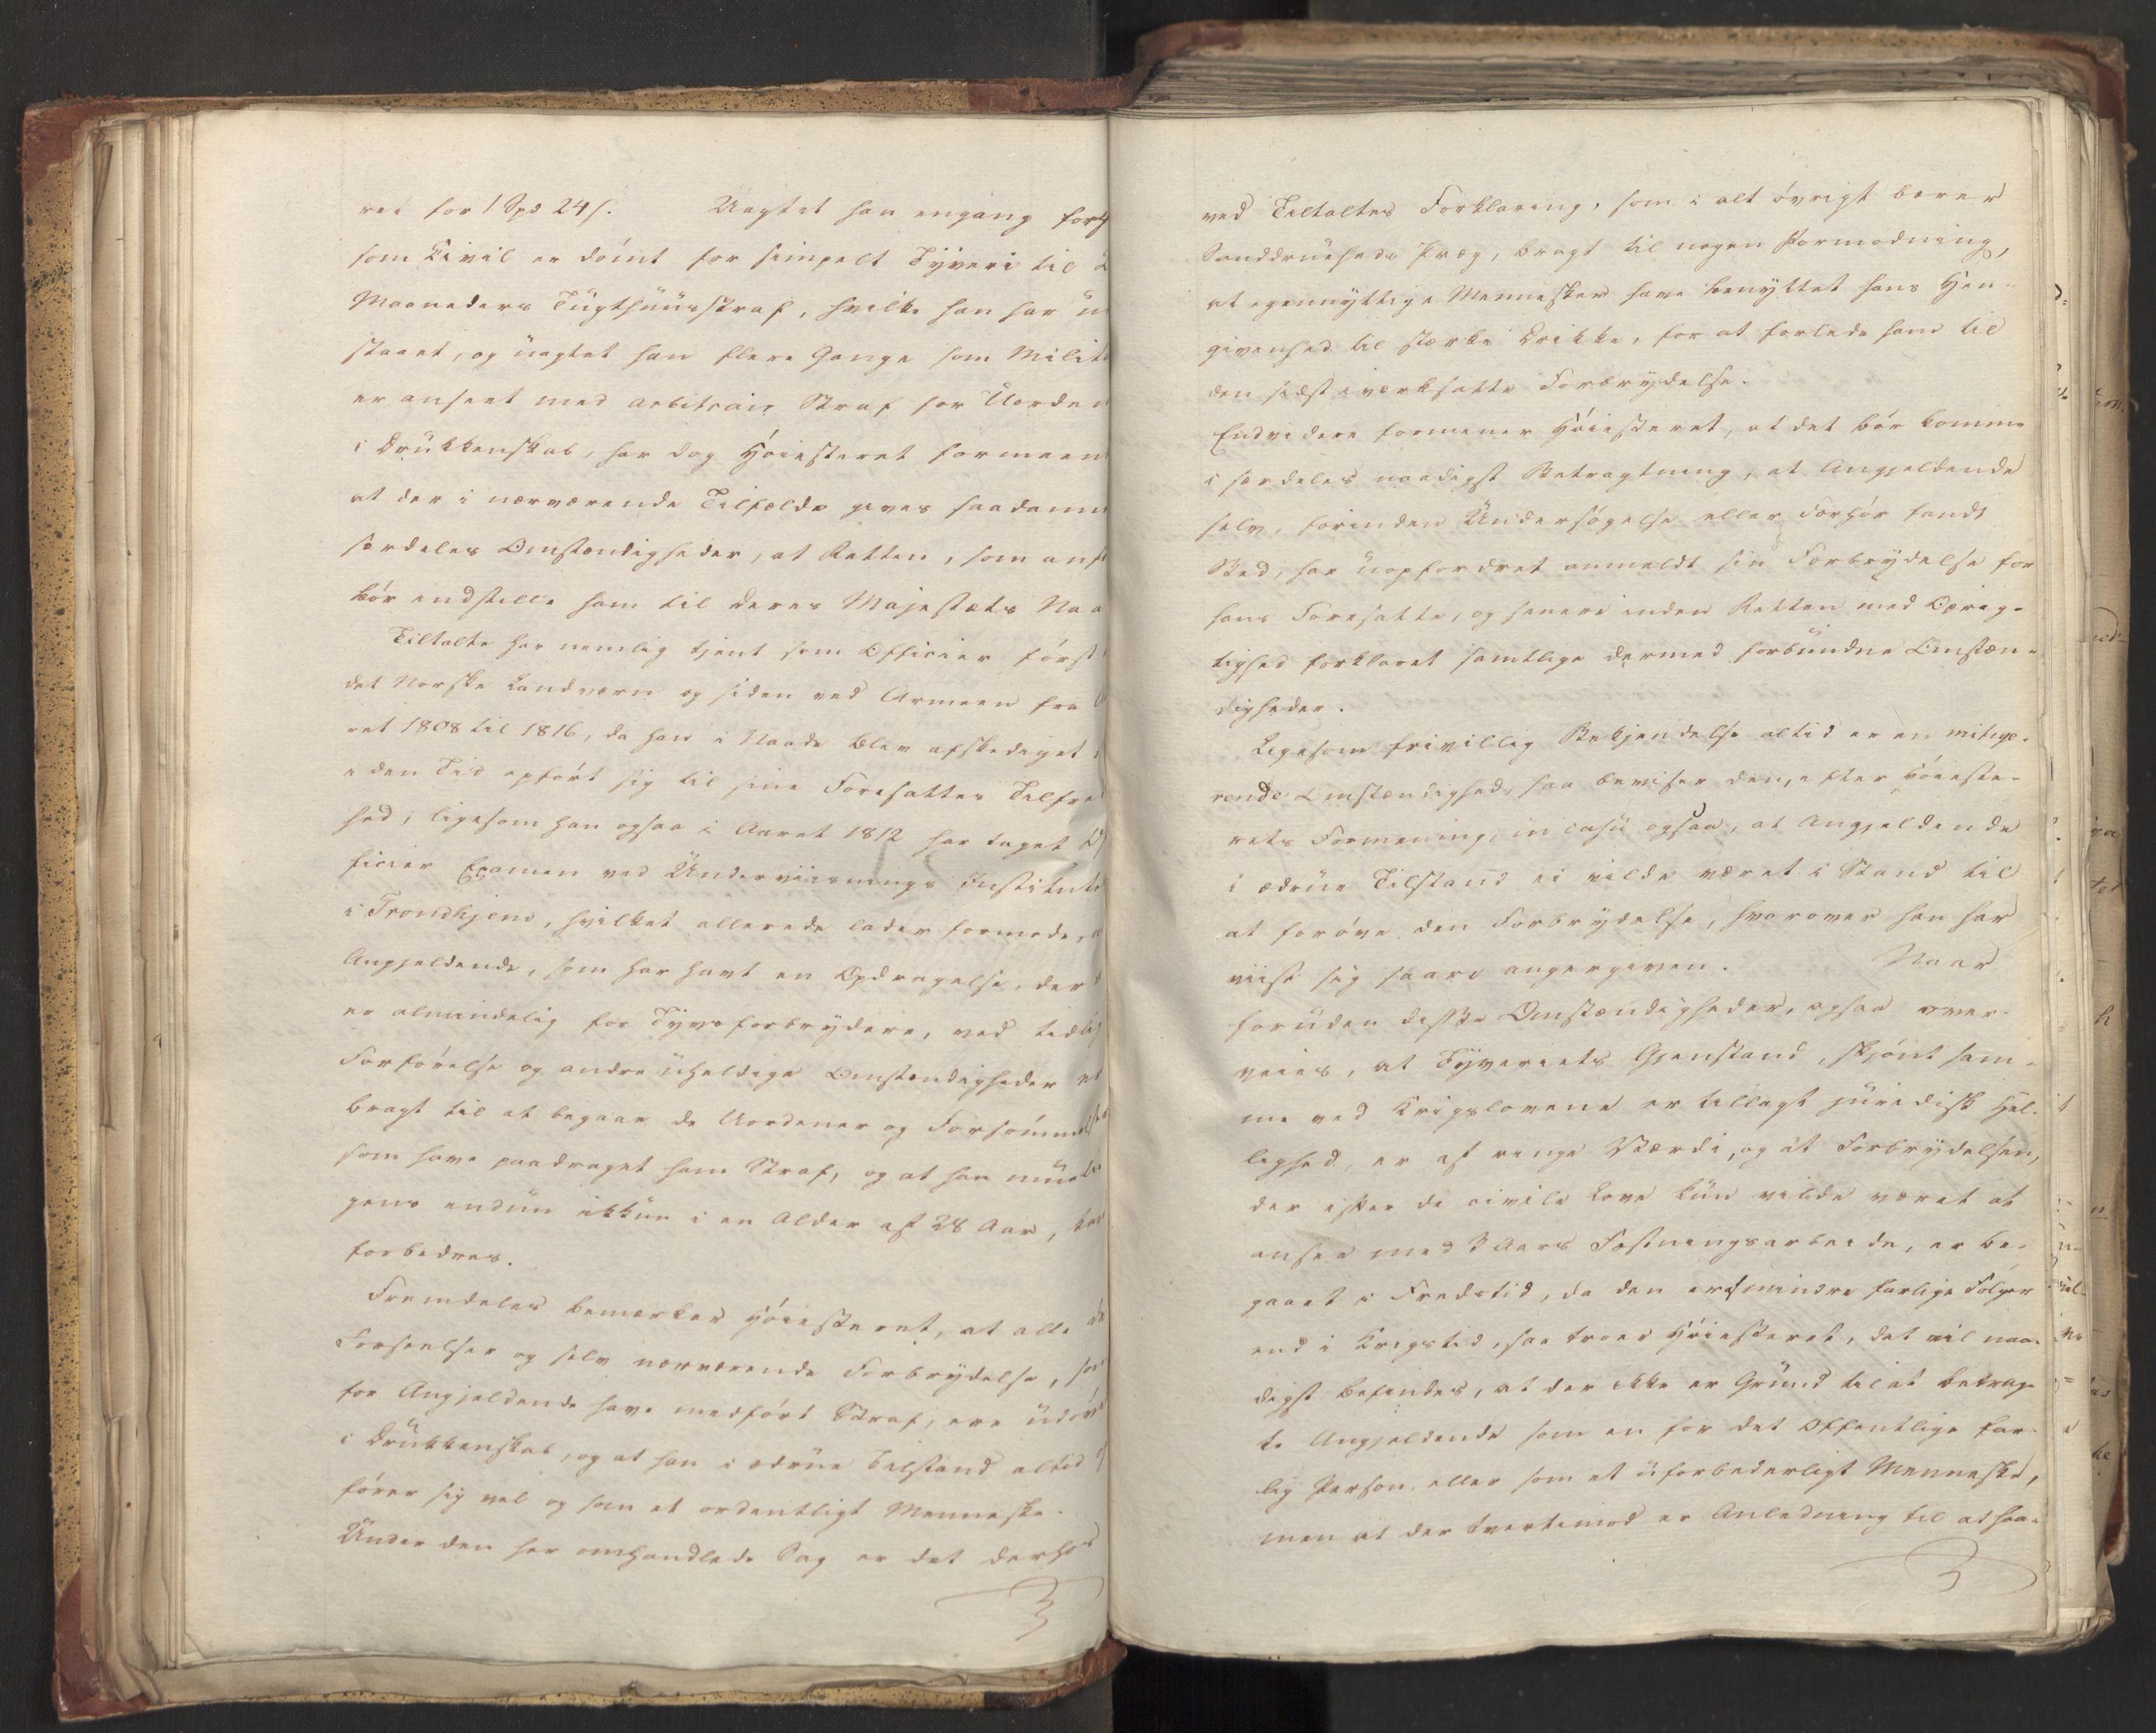 ret for 1 Spd 24 s. Uagtet han engang
som Civil er dömt for simpelt Tyveri til
Maaneders Tugthuusstraf, hvilke han har
staaet, og uagtet han flere Gange som
er anseet med arbitrair Straf for
i Drukkenskab, har dog Höiesteret formeent
at der i nærværende Tilfælde gives saadanne
særdeles Omstændigheder, at Retten, som
bör indstille ham til Deres Majestæts
Tiltalte har nemlig tjent som Officier först
det Norske Landværn og siden ved Armeen fra
ret 1808 til 1816, da han i Naade blev afskediget
i den Tid opfört sig til sine Foresattes
hed, ligesom han ogsaa i Aaret 1812 har taget
ficier Examen ved Underviisnings Institutet
i Trondhjem, hvilket allerede lader formode,
Angjeldende, som har havt en Opdragelse, der
er almindelig for Tyveforbrydere, ved
Forförelse og andre uheldige Omstændigheder er
bragt til at begaae de Uordener og Forsömmelser
som have paadraget ham Straf, og at han
gens endnu ikkun i en Alder af 28 Aar, kan
forbedres.
Fremdeles bemærker Höiesteret, at alle de
Forseelser og selv nærværende Forbrydelse, som
for Angjeldende have medfört Straf, ere udövede
i Drukkenskab, og at han i ædrue Tilstand altid
förer sig vel og som et ordentligt Menneske.
Under den her omhandlede Sag er det derhos
ved Tiltaltes Forklaring, som i alt övrigt bærer
Sanddrueheds Præg, bragt til nogen Formodning,
at egennyttige Mennesker have benyttet hans Hen-
givenhed til stærke Drikke, for at forlede ham til
den sidst iværksatte Forbrydelse.
Endvidere formener Höiesteret, at det bör komme
i særdeles naadigst Betragtning, at Angjeldende
selv, forinden Undersögelse eller Forhör fandt
Sted, har uopfordret anmeldt sin Forbrydelse for
hans Foresatte, og senere inden Retten med Oprig-
tighed forklaret samtlige dermed forbundne Omstæn-
digheder.
Ligesom frivillig Bekjendelse altid er en mitige-
rende Omstændighed, saa beviser den, efter Höieste-
rets Formening, in casu ogsaa, at Angjeldende
i ædrue Tilstand ei vilde været i Stand til
at foröve den Forbrydelse, hvorover han har
viist sig saare angergiven. Naar
foruden disse Omstændigheder, ogsaa over-
veies, at Tyveriets Gjenstand, skjönt sam-
me ved Krigslovene er tillagt juridisk Hel-
lighed, er af ringe Værdi, og at Forbrydelsen,
der efter de civile Love kun vilde været at
ansee med 3 Aars Fæstningsarbeide, er be-
gaaet i Fredstid, da den er af mindre farlige Fölger
end i Krigstid, saa troer Höiesteret, det vil naa-
digst befindes, at der ikke er Grund til at betrag-
te Angjeldende som en for det Offentlige far-
lig Person, eller som et uforbederligt Menneske,
men at der tvertimod er Anledning til at haa-